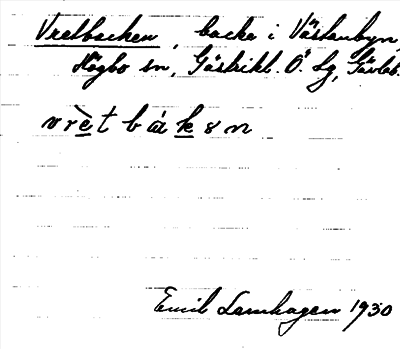 Vretbacken, backe i Västanbyn,
Högbo sn, Gästrikl. Ö. Lg, Gävleb.
vrètbákɘn
Emil Lamhagen 1930